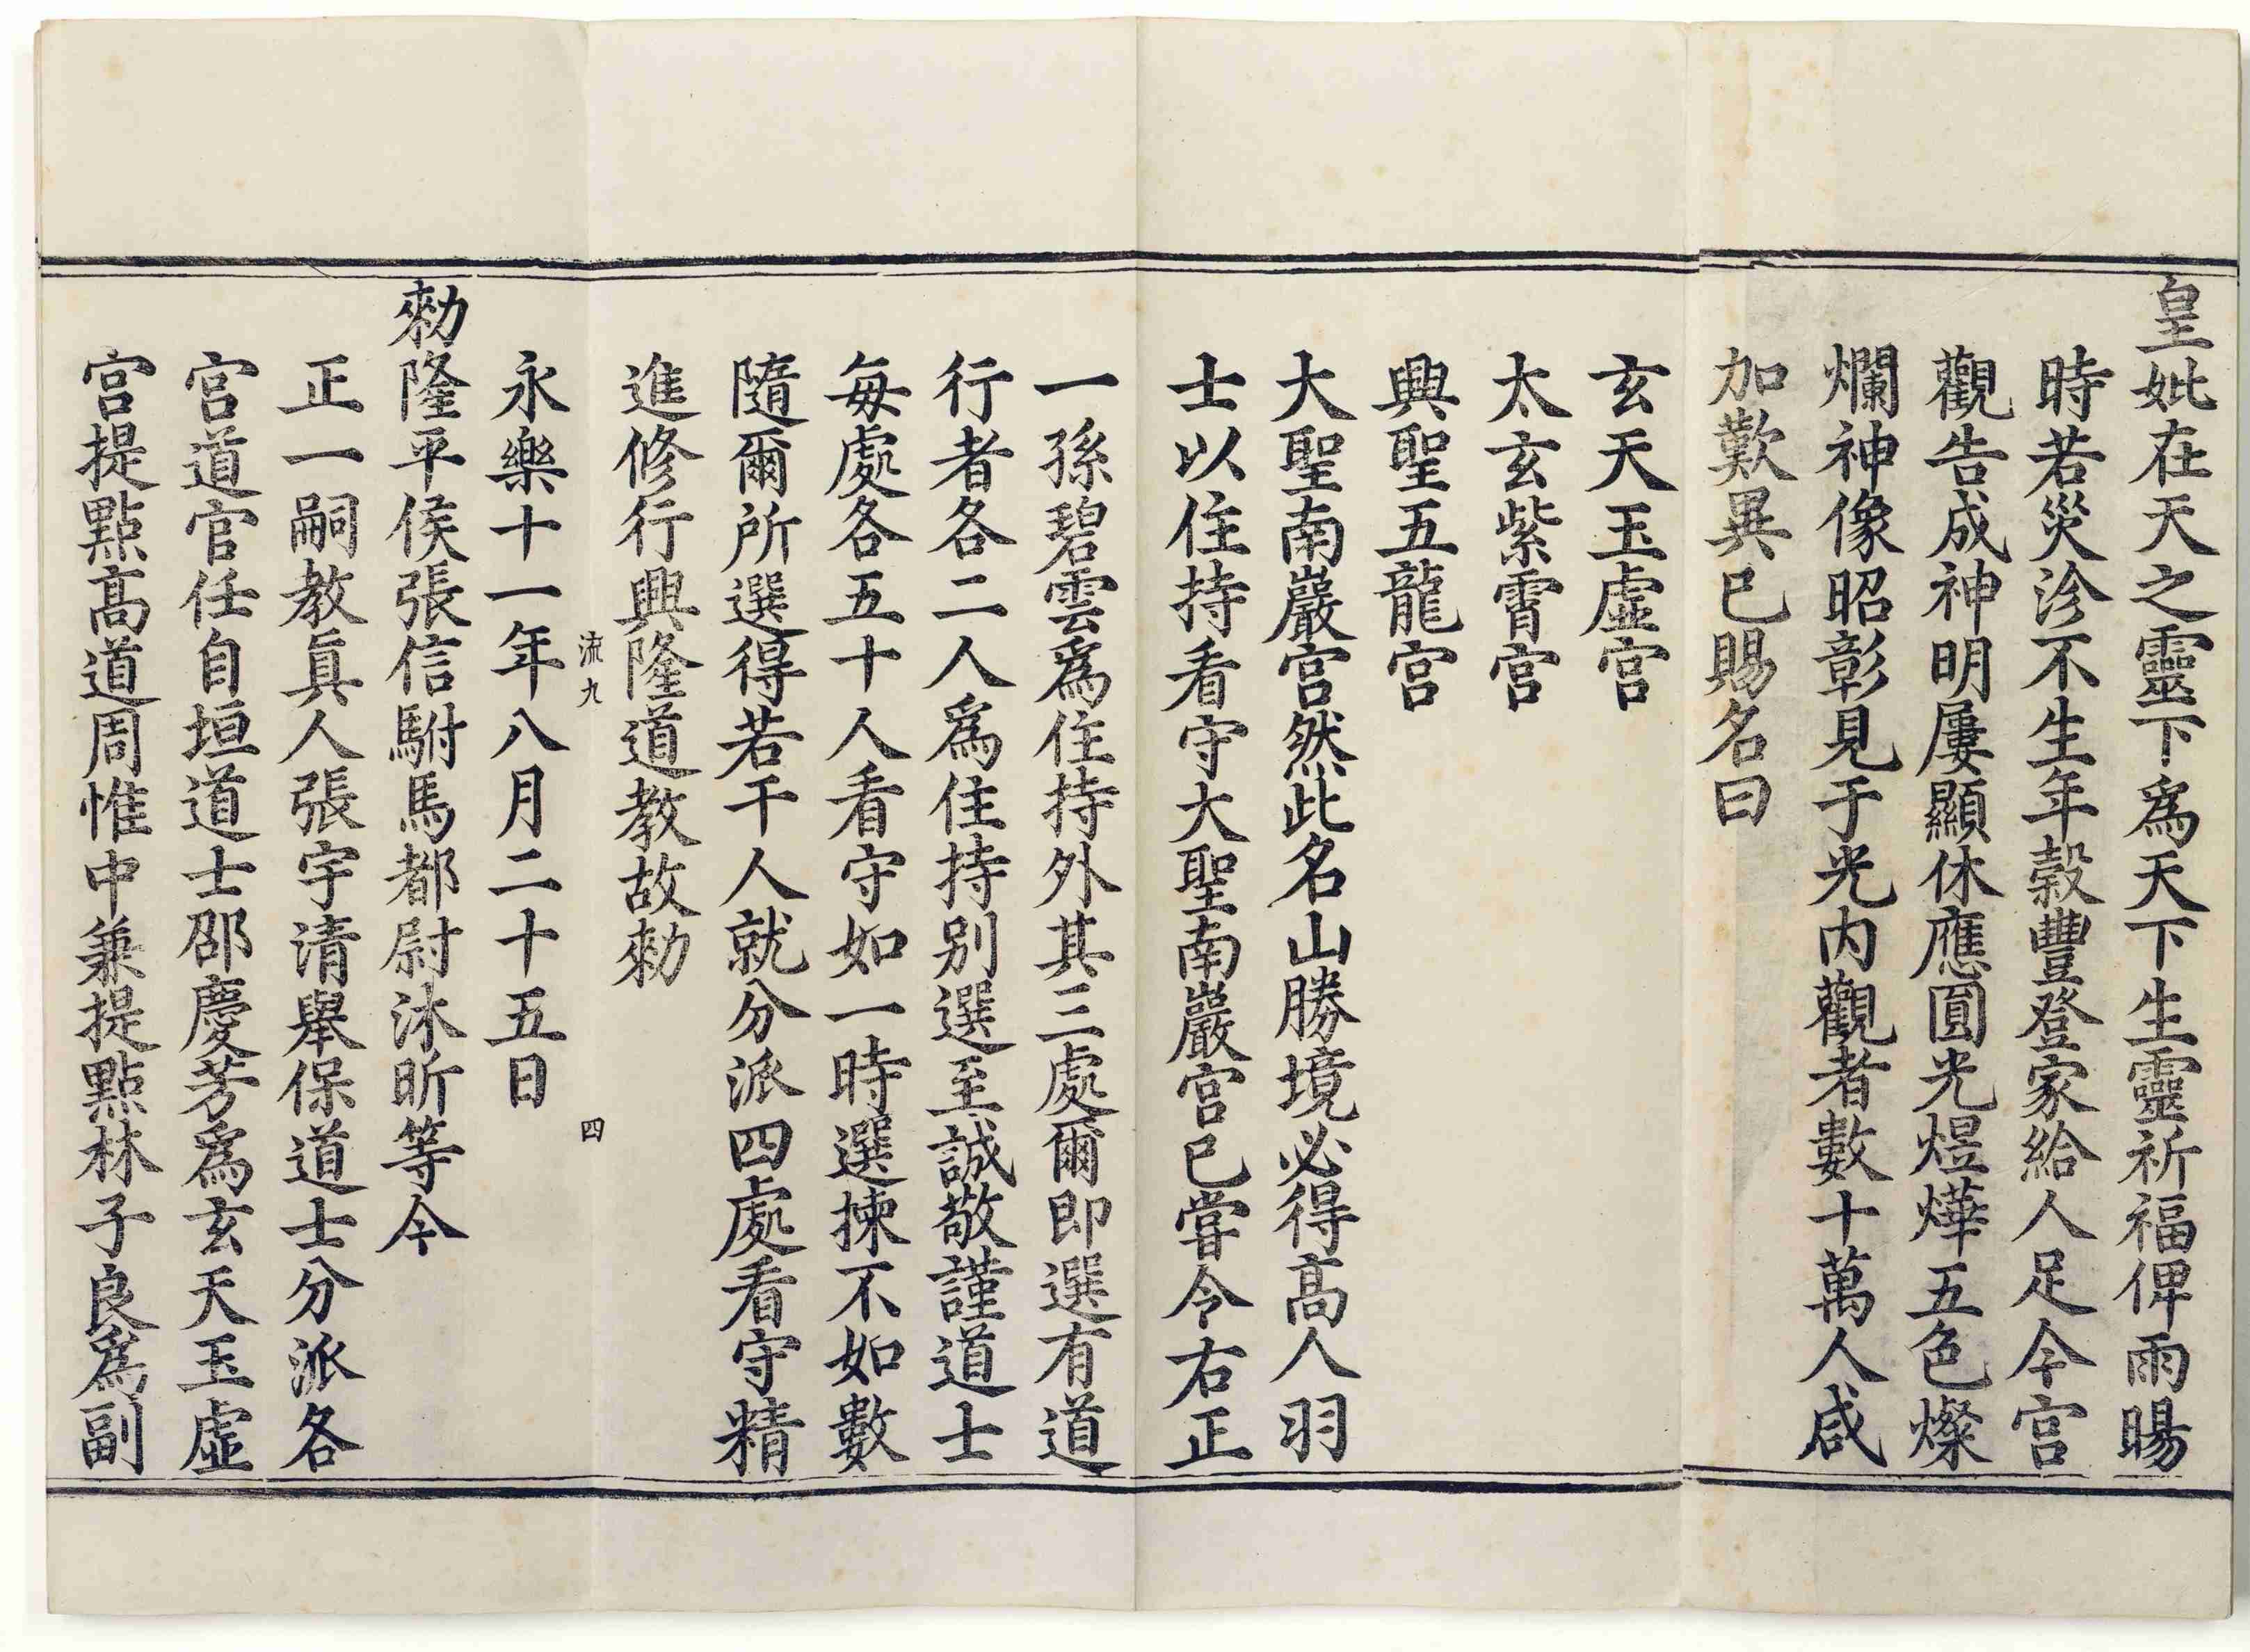 皇妣在天之靈下爲天下生靈祈福俾雨暘
時若災沴不生年穀豐登家給人足今宮
觀告成神明屢顯休應圓光煜燁五色燦
爛神像昭彰見于光内觀者數十萬人咸
加歎異已賜名曰
玄天玉虛宮
太玄紫霄宮
興聖五龍宮
大聖南巖宮然此名山勝境必得髙人羽
士以住持看守大聖南巖宮已嘗令右正
一孫碧雲爲住持外其三處爾即選有道
行者各二人爲住持別選至誠敬謹道士
每處各五十人看守如一時選揀不如數
隨爾所選得若干人就分派四處看守精
進修行興隆道教故勑
流九
四
永樂十一年八月二十五日
勑隆平侯張信駙馬都尉沐昕等今
正一嗣教眞人張宇清舉保道士分派各
宮道官任自垣道士邵慶芳爲玄天玉虛
宮提點髙道周惟中兼提點林子良爲副